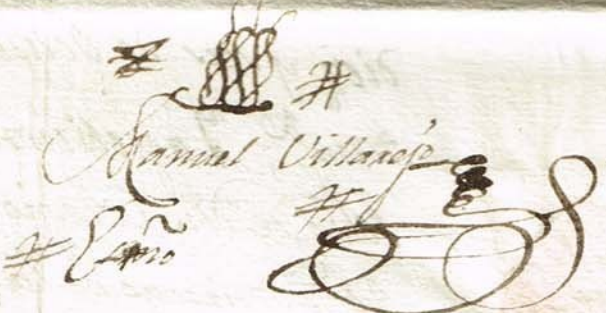 Manuel Villarejo
Essno